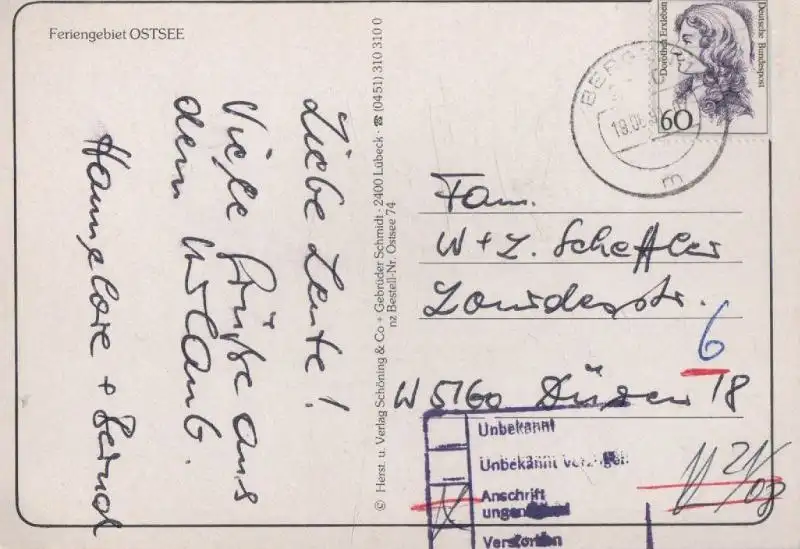 Feriengebiet OSTSEE
Liebe Leute!
Viele Grüße aus
dem Urlaub.
Hannelore + Bernd
© Herst. u. Verlag Schöning & Co + Gebrüder Schmidt · 2400 Lübeck · ☎ (0451) 310 310 0
nz Bestell-Nr. Ostsee 74
Dorothea Erxleben
Deutsche Bundespost
60
BERG
m
Fam.
W + L. Scheffler
Lourdesstr.
6
W 5160 Düren 18
Unbekannt
Unbekannt verzogen
Anschrift
Verstorben